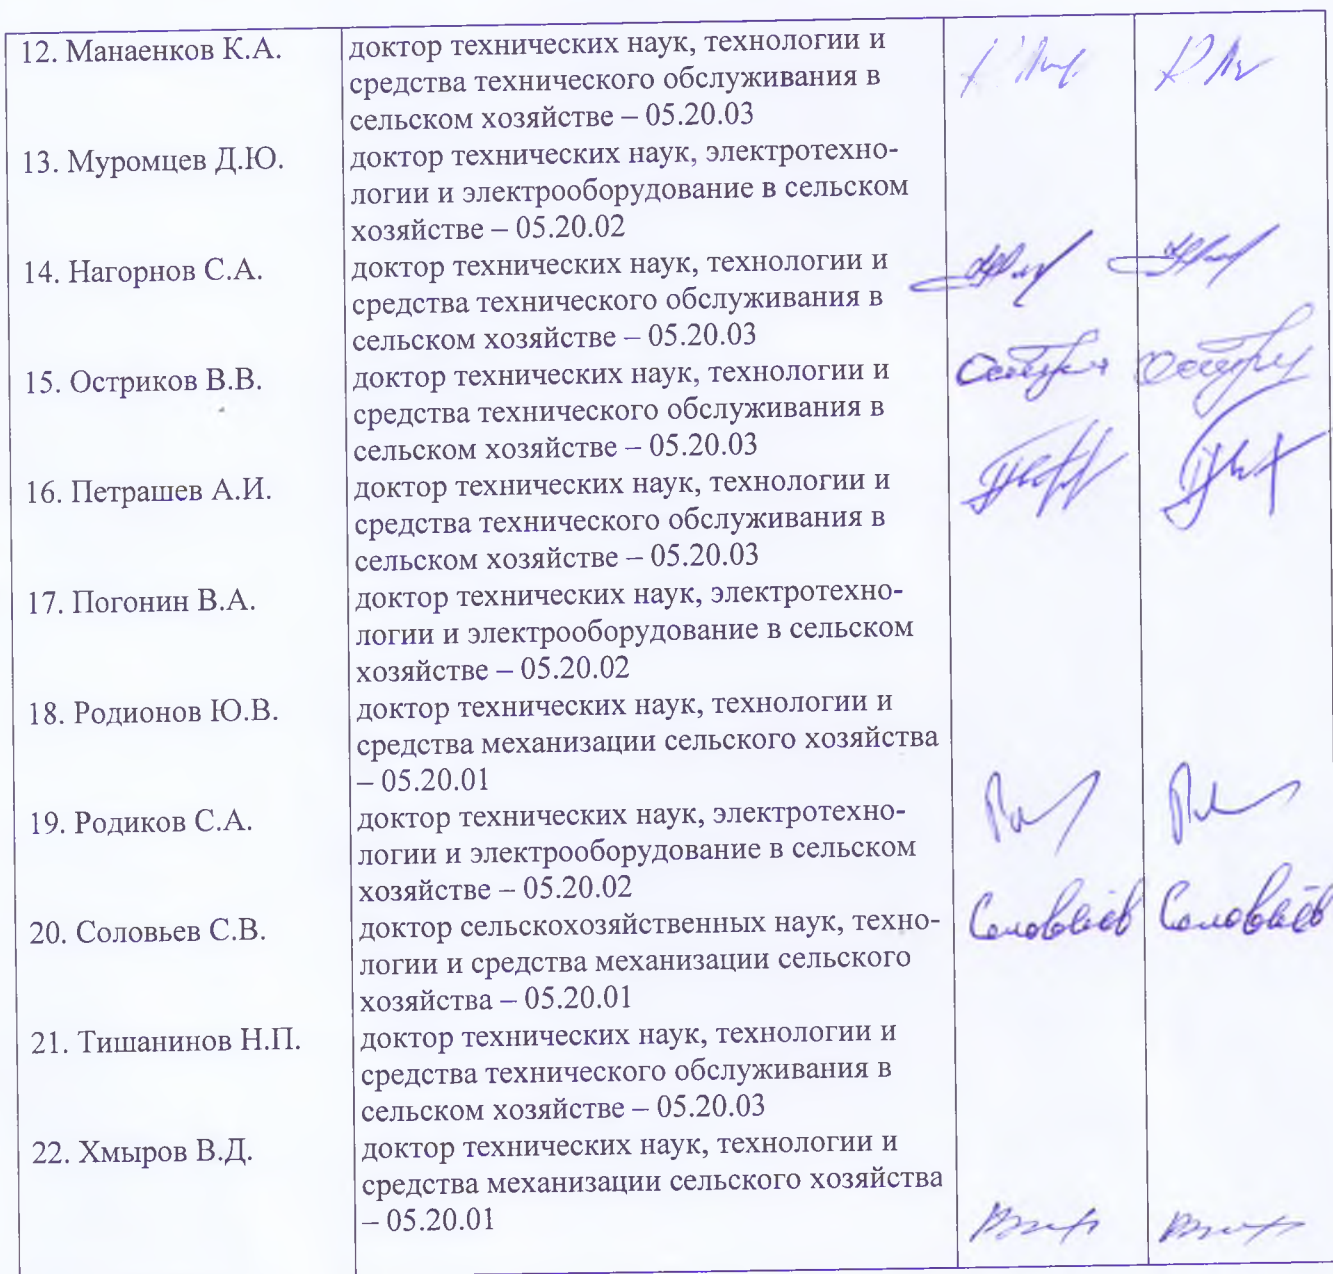 12. Манаенков К.А. доктор технических наук, технологии и
средства технического обслуживания в
сельском хозяйстве – 05.20.03
13. Муромцев Д.Ю. доктор технических наук, электротехно-
логии и электрооборудование в сельском
хозяйстве – 05.20.02
14. Нагорнов С.А. доктор технических наук, технологии и
средства технического обслуживания в
сельском хозяйстве – 05.20.03
15. Остриков В.В. доктор технических наук, технологии и
средства технического обслуживания в
сельском хозяйстве – 05.20.03
16. Петрашев А.И. доктор технических наук, технологии и
средства технического обслуживания в
сельском хозяйстве – 05.20.03
17. Погонин В.А. доктор технических наук, электротехно-
логии и электрооборудование в сельском
хозяйстве – 05.20.02
18. Родионов Ю.В. доктор технических наук, технологии и
средства механизации сельского хозяйства
– 05.20.01
19. Родиков С.А. доктор технических наук, электротехно-
логии и электрооборудование в сельском
хозяйстве – 05.20.02
20. Соловьев С.В. доктор сельскохозяйственных наук, техно- Соловьёв Соловьёв
логии и средства механизации сельского
хозяйства – 05.20.01
21. Тишанинов Н.П. доктор технических наук, технологии и
средства технического обслуживания в
сельском хозяйстве – 05.20.03
22. Хмыров В.Д. доктор технических наук, технологии и
средства механизации сельского хозяйства
– 05.20.01